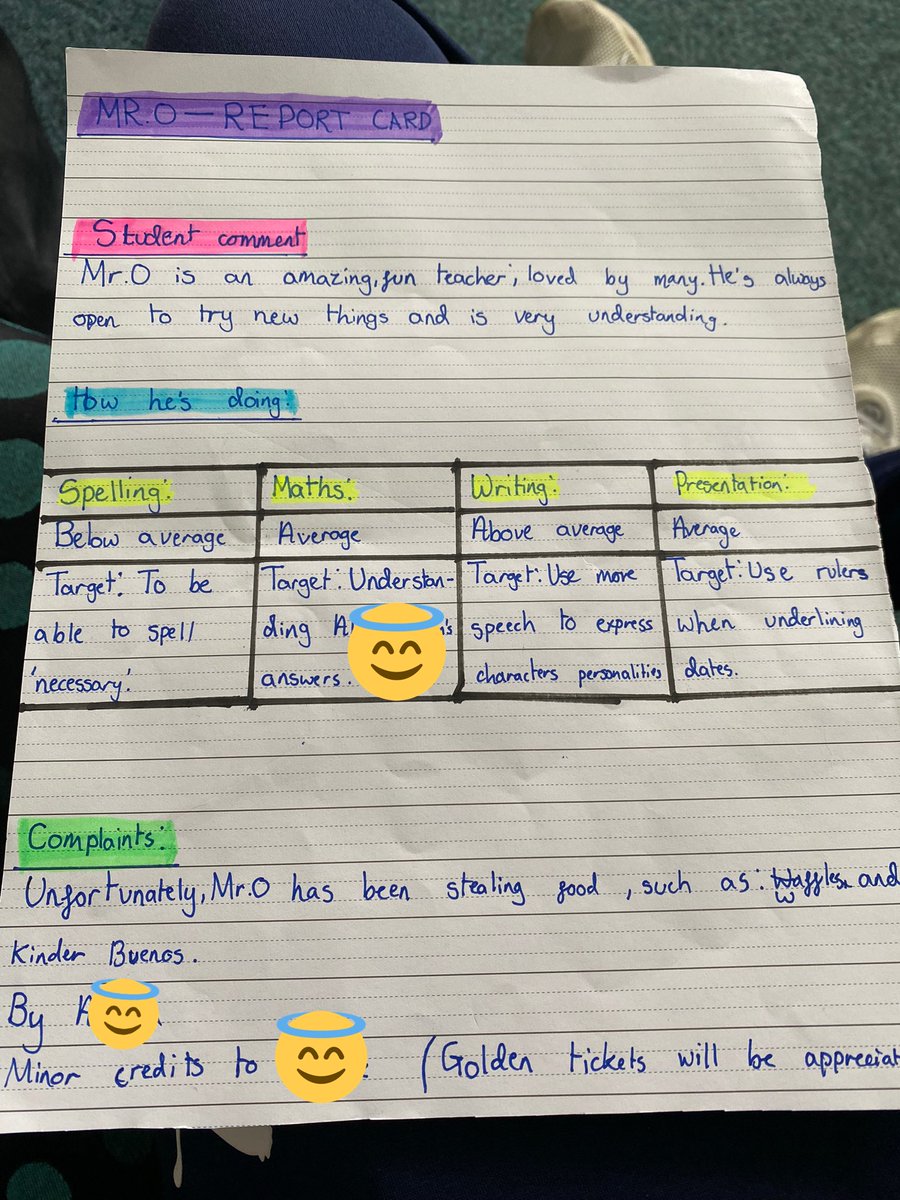 MR.O — REPORT CARD
Student comment
Mr.O is an amazing, fun teacher; loved by many. He's always
open to try new things and is very understanding.
How he's doing:
Spelling: Maths: Writing: Presentation:
Below average Average Above average Average
Target: To be able to spell 'necessary'.
Target: Understan-
ding answers.
Target: Use more
speech to express
characters personalities
Target: Use rulers
when underlining
dates.
Complaints:
Unfortunately, Mr.O has been stealing food, such as: waffles and
Kinder Buenos.
By
Minor credits to (Golden tickets will be